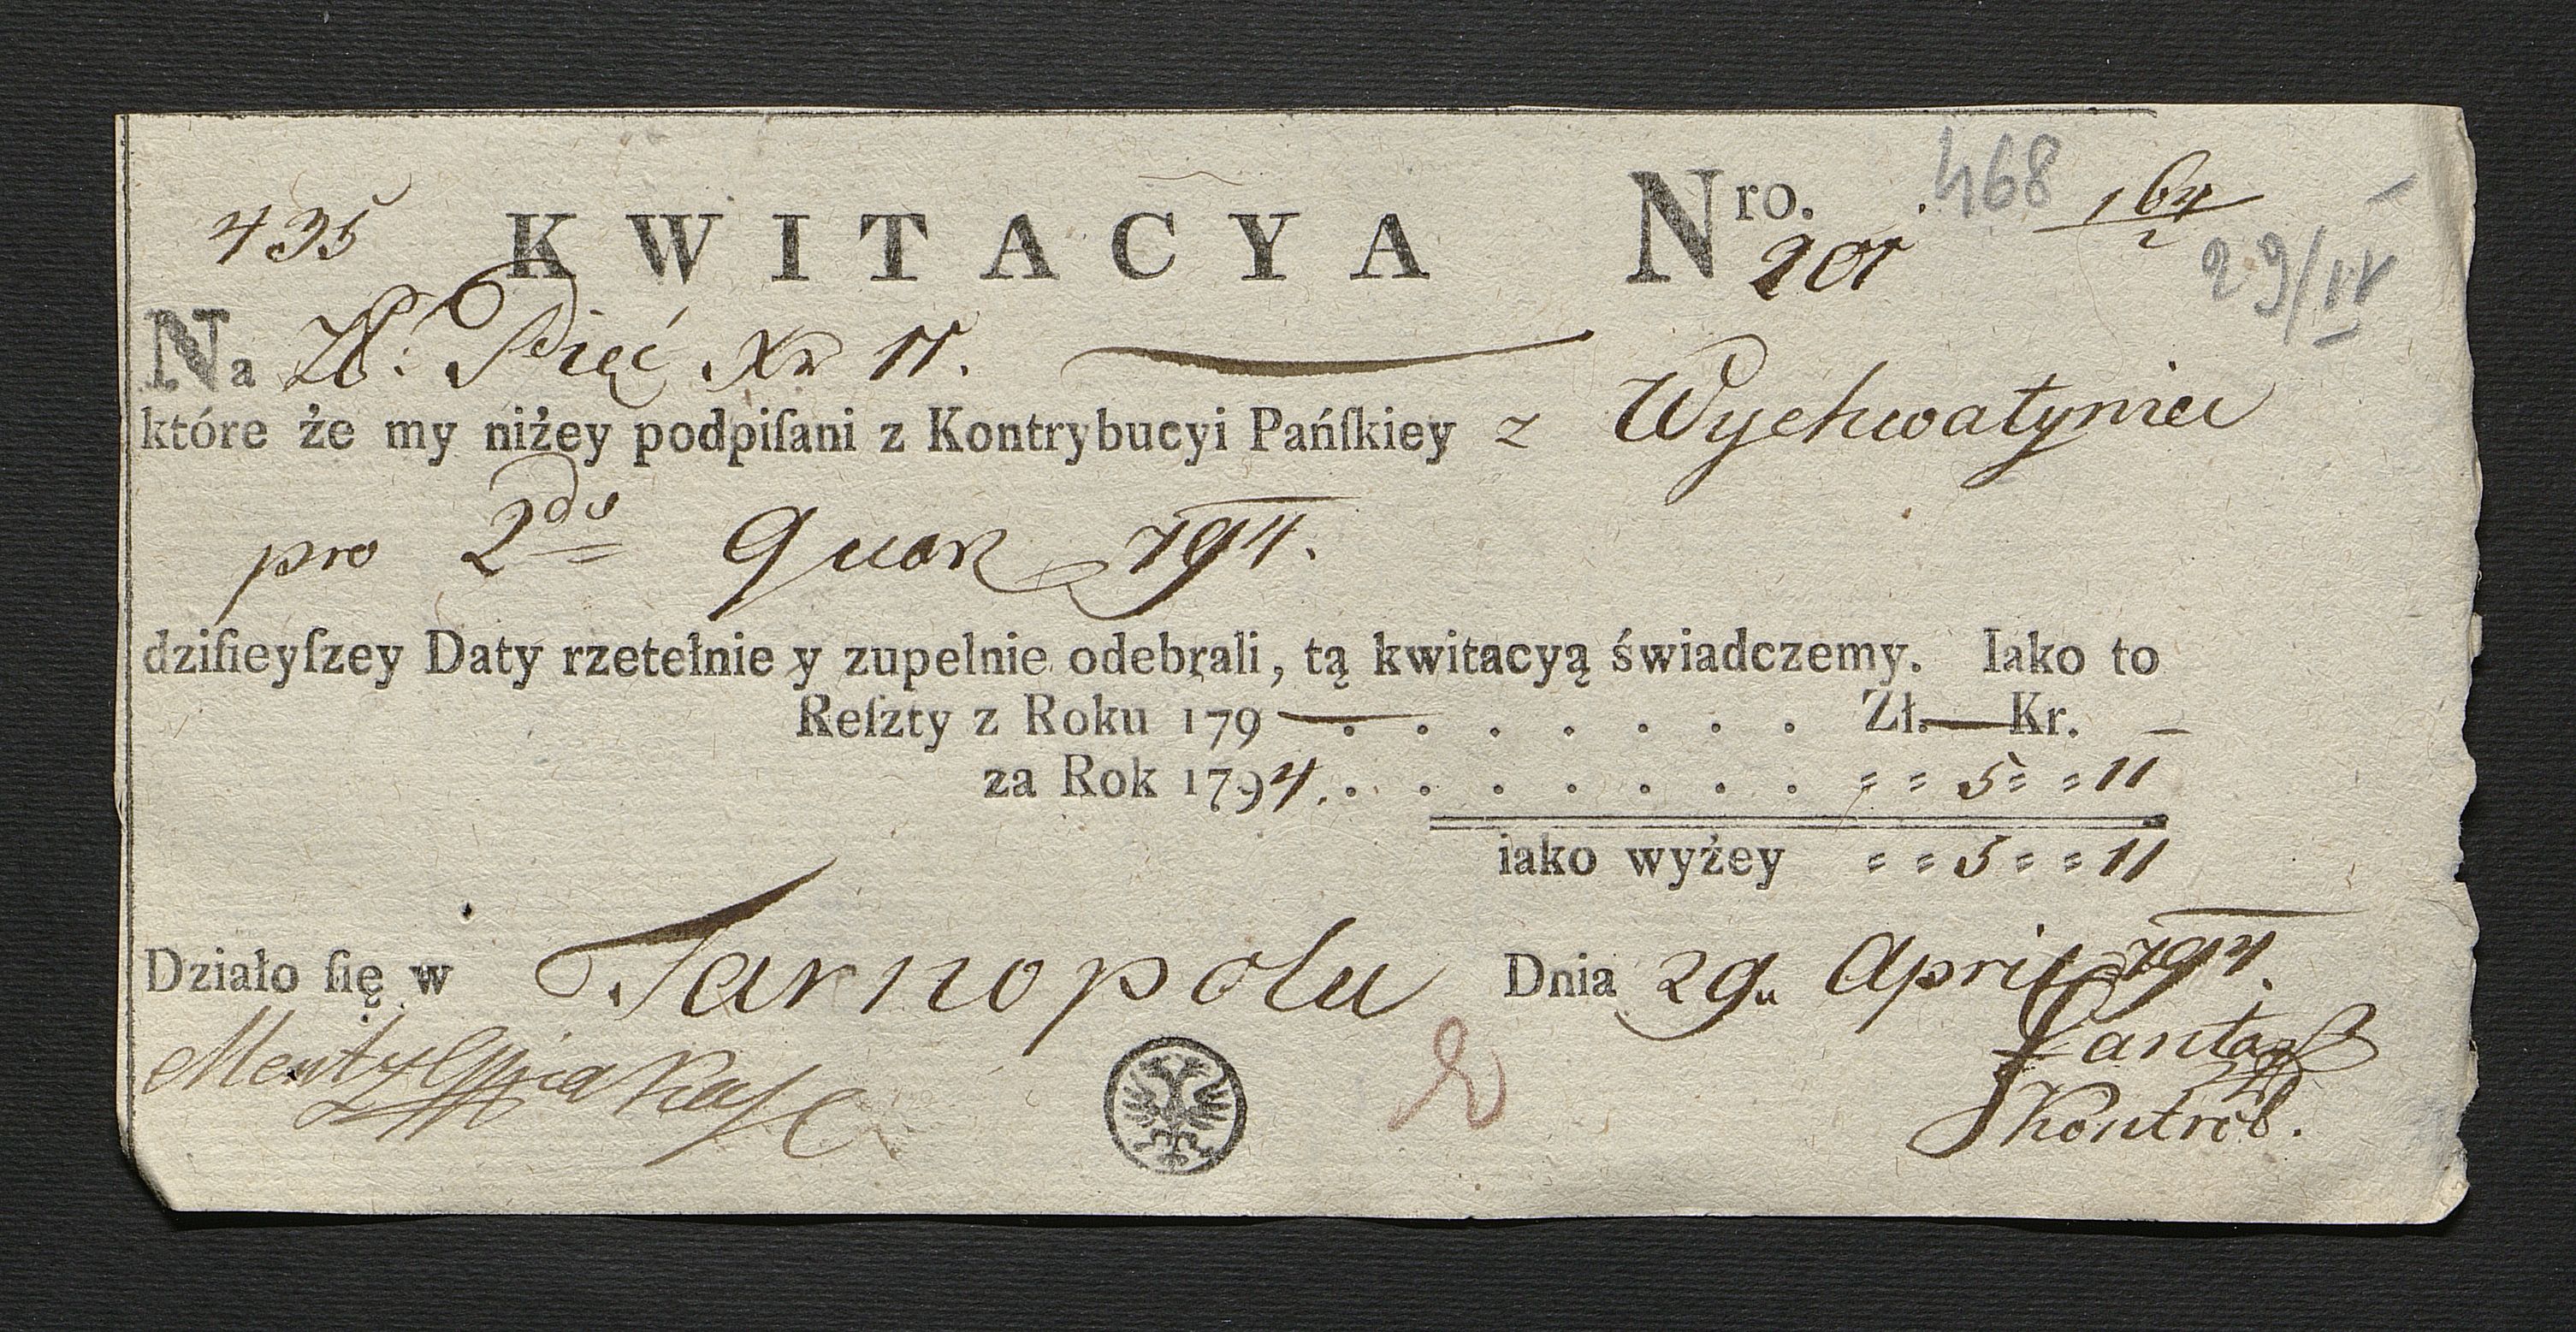 435 KWITACYA Nro. 201 468 164/2
29/IV
Na Zł: Pięć Xr 11.
które że my niżey podpiſani z Kontrybucyi Pańſkiey z Wychwatyniec
pro 2do Quar 794.
dziſieyſzey Daty rzetelnie y zupelnie odebrali, tą kwitacyą świadczemy. Iako to
Reſzty z Roku 179— . . . . . . . Zł.—Kr. —
za Rok 1794. . . . . . . . = = 5 = = 11
iako wyżey = = 5 = = 11
Działo ſię w Tarnopolu Dnia 29 April 794.
Kontrol.